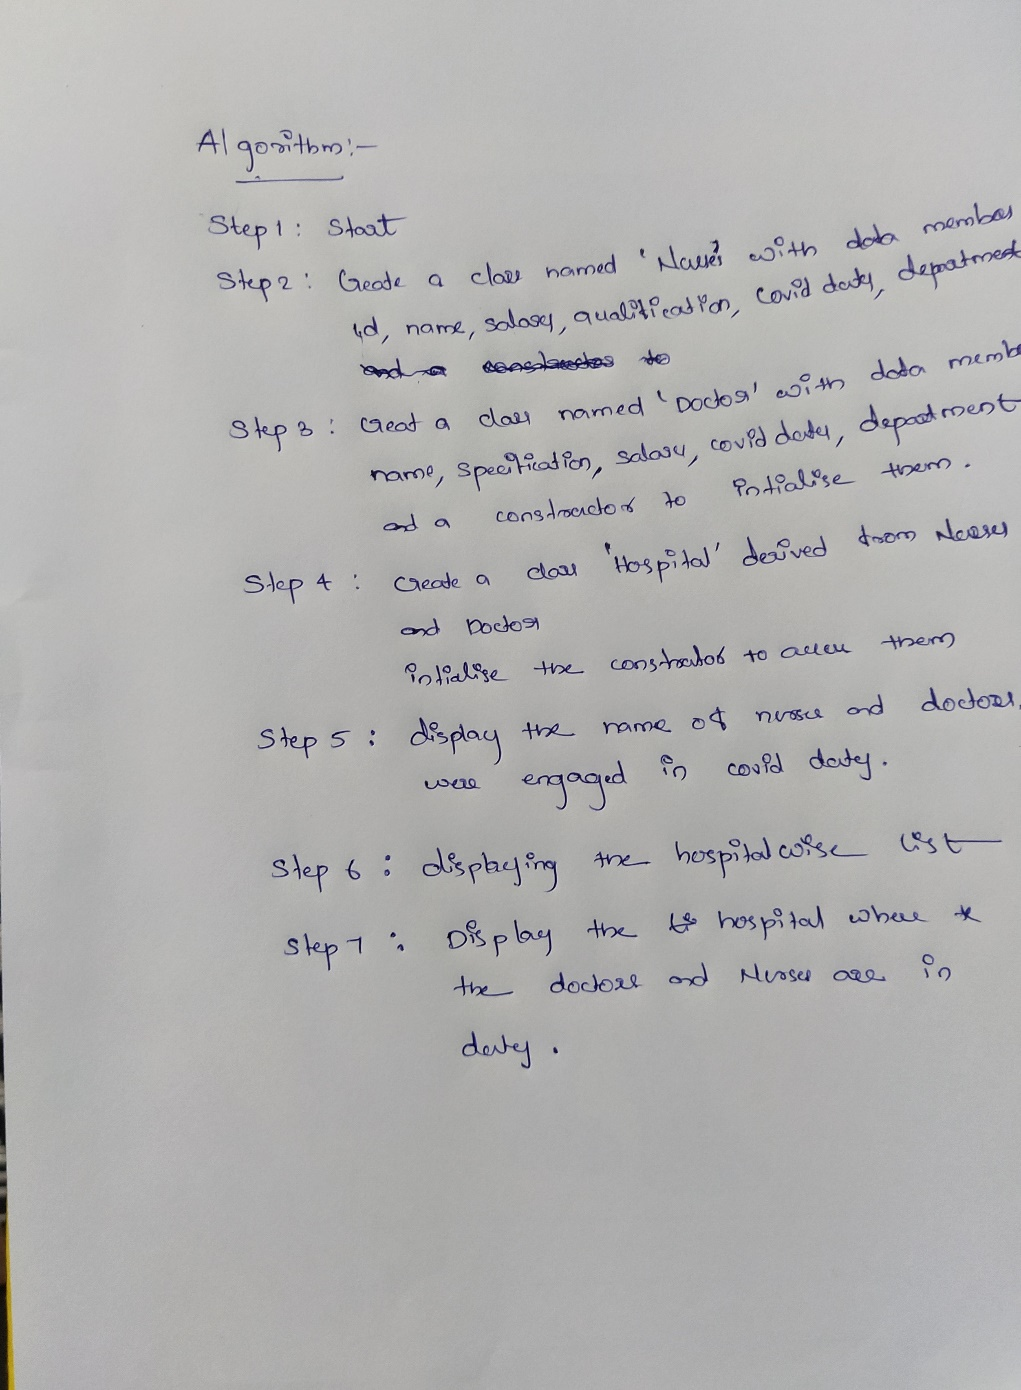 Algorithm:-
Step 1: Start
Step 2: Create a class named 'Nurses' with data member
id, name, salary, qualification, covid duty, department
and a constructor to
Step 3: Creat a class named 'Doctor' with data membe
name, specification, salary, covid duty, department
and a constructor to intialise them.
Step 4: Create a class 'Hospital' derived from Nurses
and Doctor
intialise the constrator to access them
Step 5: display the name of nurses and doctors,
were engaged in covid duty.
Step 6: displaying the hospital wise list
Step 7: Display the hospital where
the doctors and Nurses are in
duty.